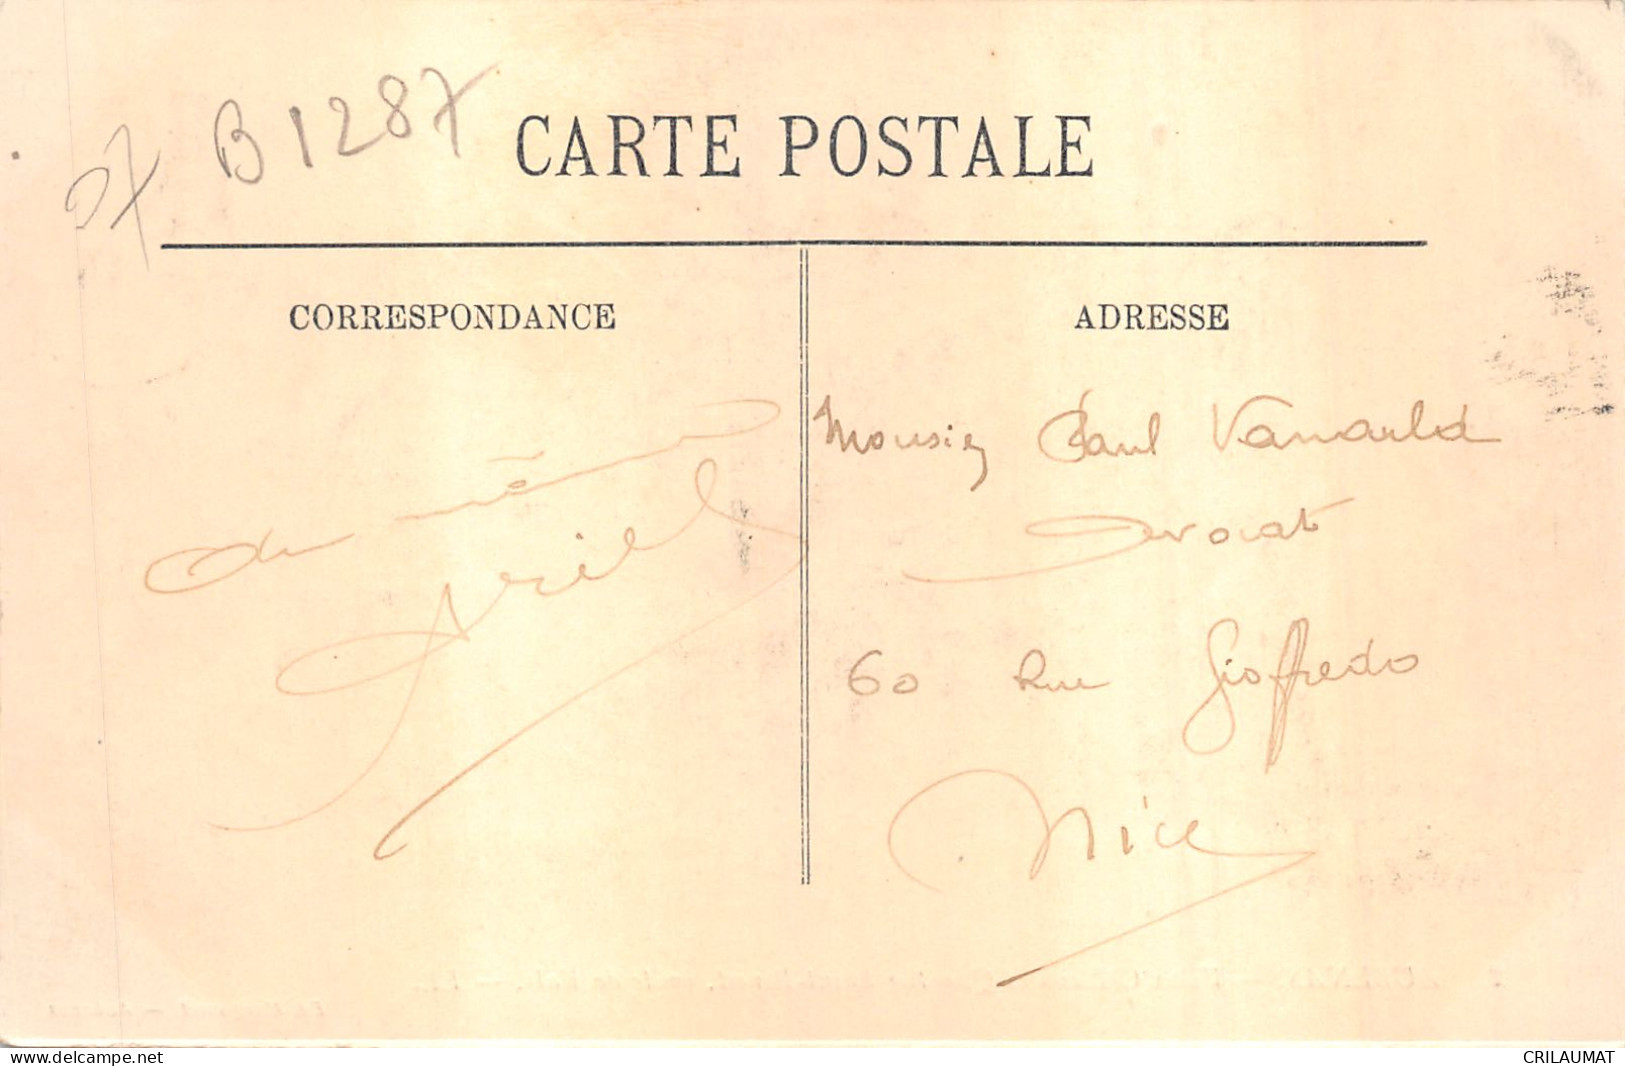 07 B1287
CARTE POSTALE
CORRESPONDANCE
ADRESSE
Monsieur Paul
Avocat
60 Rue Gioffredo
Nice
Ariel
www.delcampe.net
CRILAUMAT